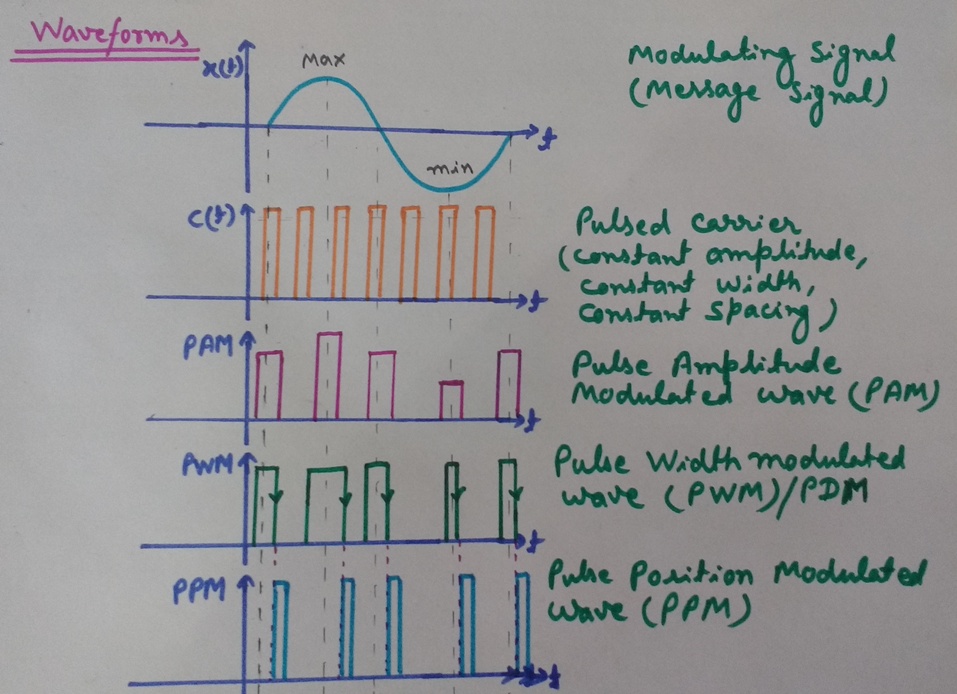 Waveforms
x(t)
Max
min
t
Modulating Signal
(Message Signal)
c(t)
t
Pulsed carrier
(constant amplitude,
constant width,
constant spacing)
PAM
t
Pulse Amplitude
Modulated wave (PAM)
PWM
t
Pulse Width modulated
wave (PWM)/PDM
PPM
t
Pulse Position Modulated
wave (PPM)